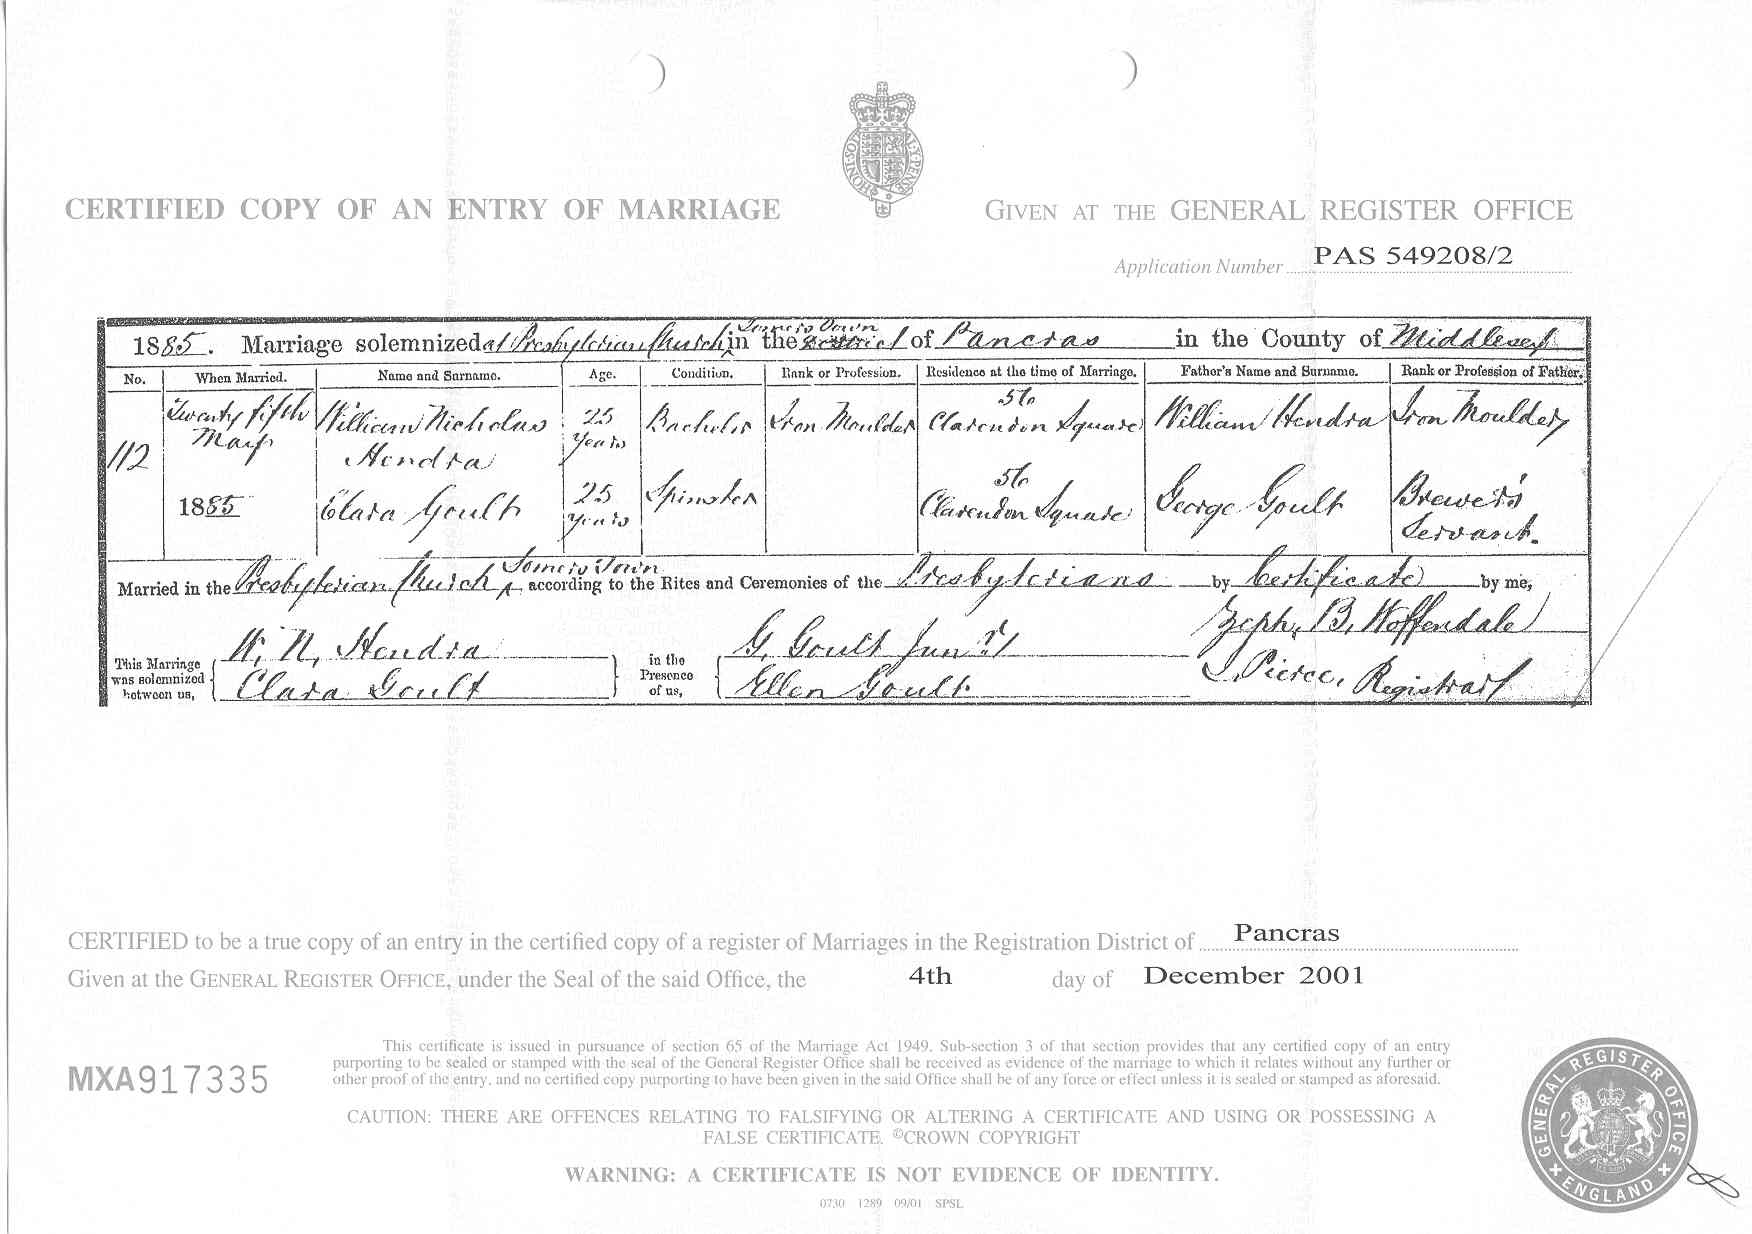 CERTIFIED COPY OF AN ENTRY OF MARRIAGE
GIVEN AT THE GENERAL REGISTER OFFICE
Application Number PAS 549208/2
Somers Town
1885. Marriage solemnized at Presbyterian Church in the District of Pancras in the County of Middlesex
No. When Married. Name and Surname. Age. Condition. Rank or Profession. Residence at the time of Marriage. Father's Name and Surname. Rank or Profession of Father.
112
Twenty fifth
May
1885
William Nicholas
Hendra
25
years
Bachelor
Iron Moulder
56
Clarendon Square
William Hendra
Iron Moulder
Clara Goult
25
years
Spinster
56
Clarendon Square
George Goult
Brewer's
Servant.
Somers Town
Married in the Presbyterian Church according to the Rites and Ceremonies of the Presbyterians by Certificate by me,
Zeph. B. Woffendale
Pierce, Registrar
This Marriage
was solemnized
between us,
W. N. Hendra
Clara Goult
in the
Presence
of us,
G. Goult Junr
Ellen Goult
CERTIFIED to be a true copy of an entry in the certified copy of a register of Marriages in the Registration District of Pancras
Given at the GENERAL REGISTER OFFICE, under the Seal of the said Office, the 4th day of December 2001
MXA917335
This certificate is issued in pursuance of section 65 of the Marriage Act 1949. Sub-section 3 of that section provides that any certified copy of an entry
purporting to be sealed or stamped with the seal of the General Register Office shall be received as evidence of the marriage to which it relates without any further or
other proof of the entry, and no certified copy purporting to have been given in the said Office shall be of any force or effect unless it is sealed or stamped as aforesaid.
CAUTION: THERE ARE OFFENCES RELATING TO FALSIFYING OR ALTERING A CERTIFICATE AND USING OR POSSESSING A
FALSE CERTIFICATE. ©CROWN COPYRIGHT
WARNING: A CERTIFICATE IS NOT EVIDENCE OF IDENTITY.
0730 1289 09/01 SPSL
GENERAL REGISTER OFFICE
ENGLAND